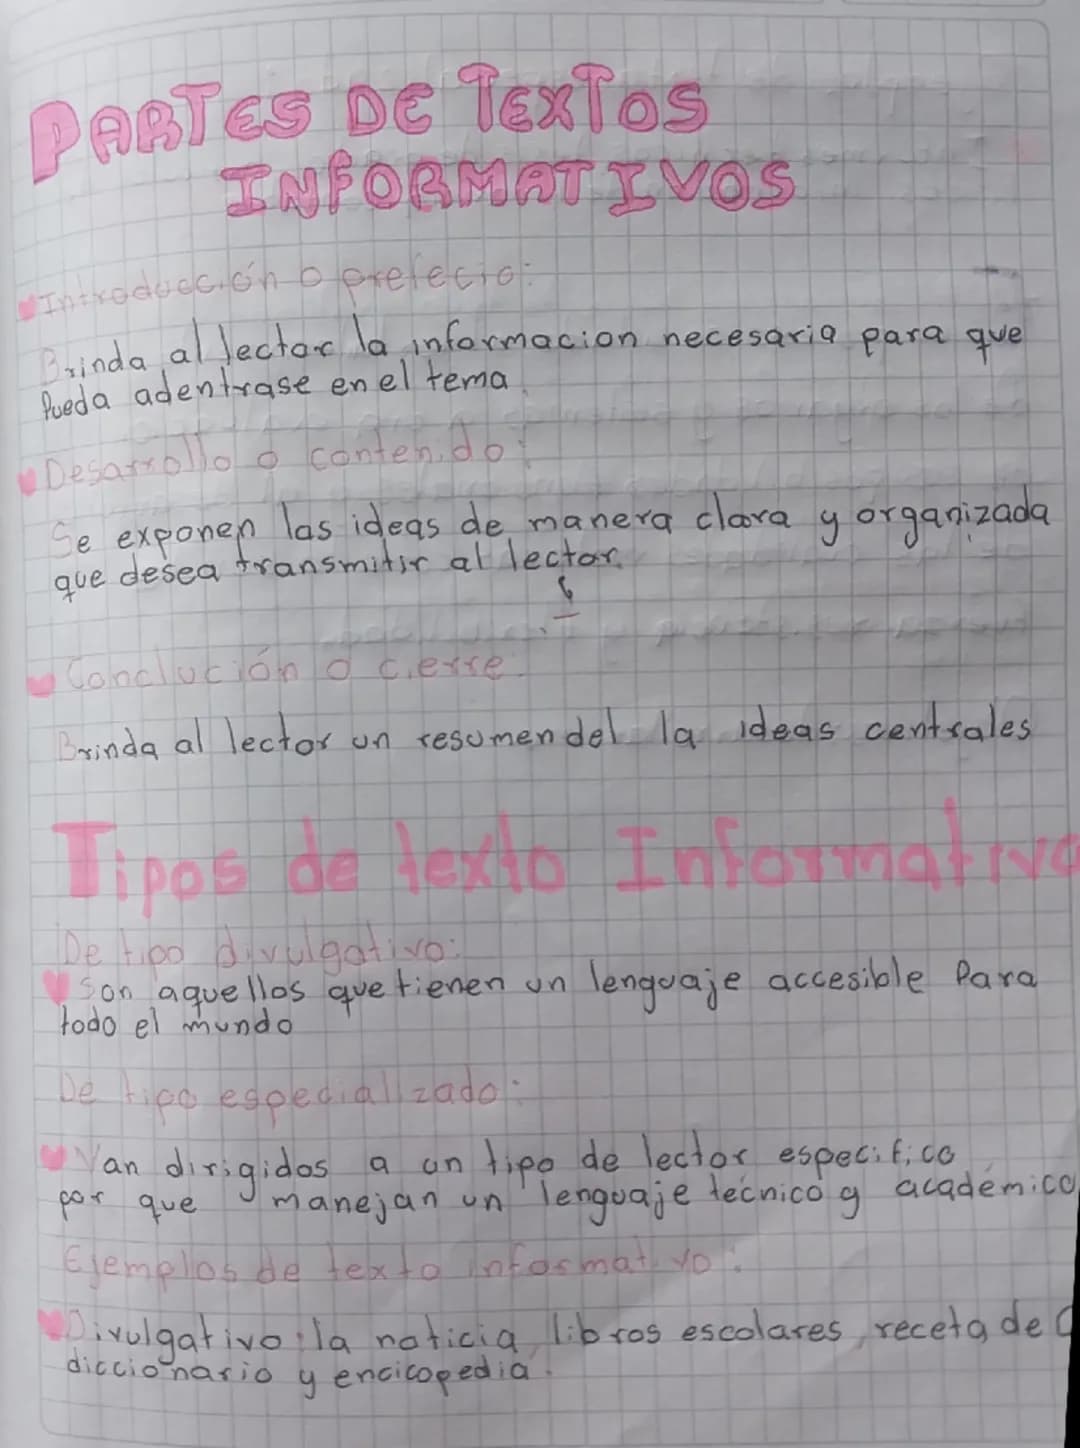 PARTES DE TEXTOS
INFORMATIVOS
Introducción o prefecio:
Brinda al lector la informacion necesaria para que
Pueda adentrase en el tema.
Desarrollo o contenido:
Se exponen las ideas de manera clara y organizada
que desea transmitir al lector.
Conclución o cierre:
Brinda al lector un resumen del la ideas centrales
Tipos de texto Informativo
De tipo divulgativo:
Son aquellos que tienen un lenguaje accesible Para
todo el mundo
De tipo espedializado:
Van dirigidos a un tipo de lector especifico
por que manejan un lenguaje tecnico y académico
Ejemplos de texto informativo:
Divulgativo: la noticia, libros escolares, receta de
diccionario y encicopedia.